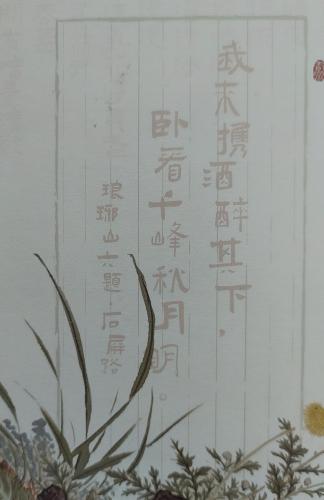 我来携酒醉其下，
卧看千峰秋月明。
琅琊山六题·石屏路